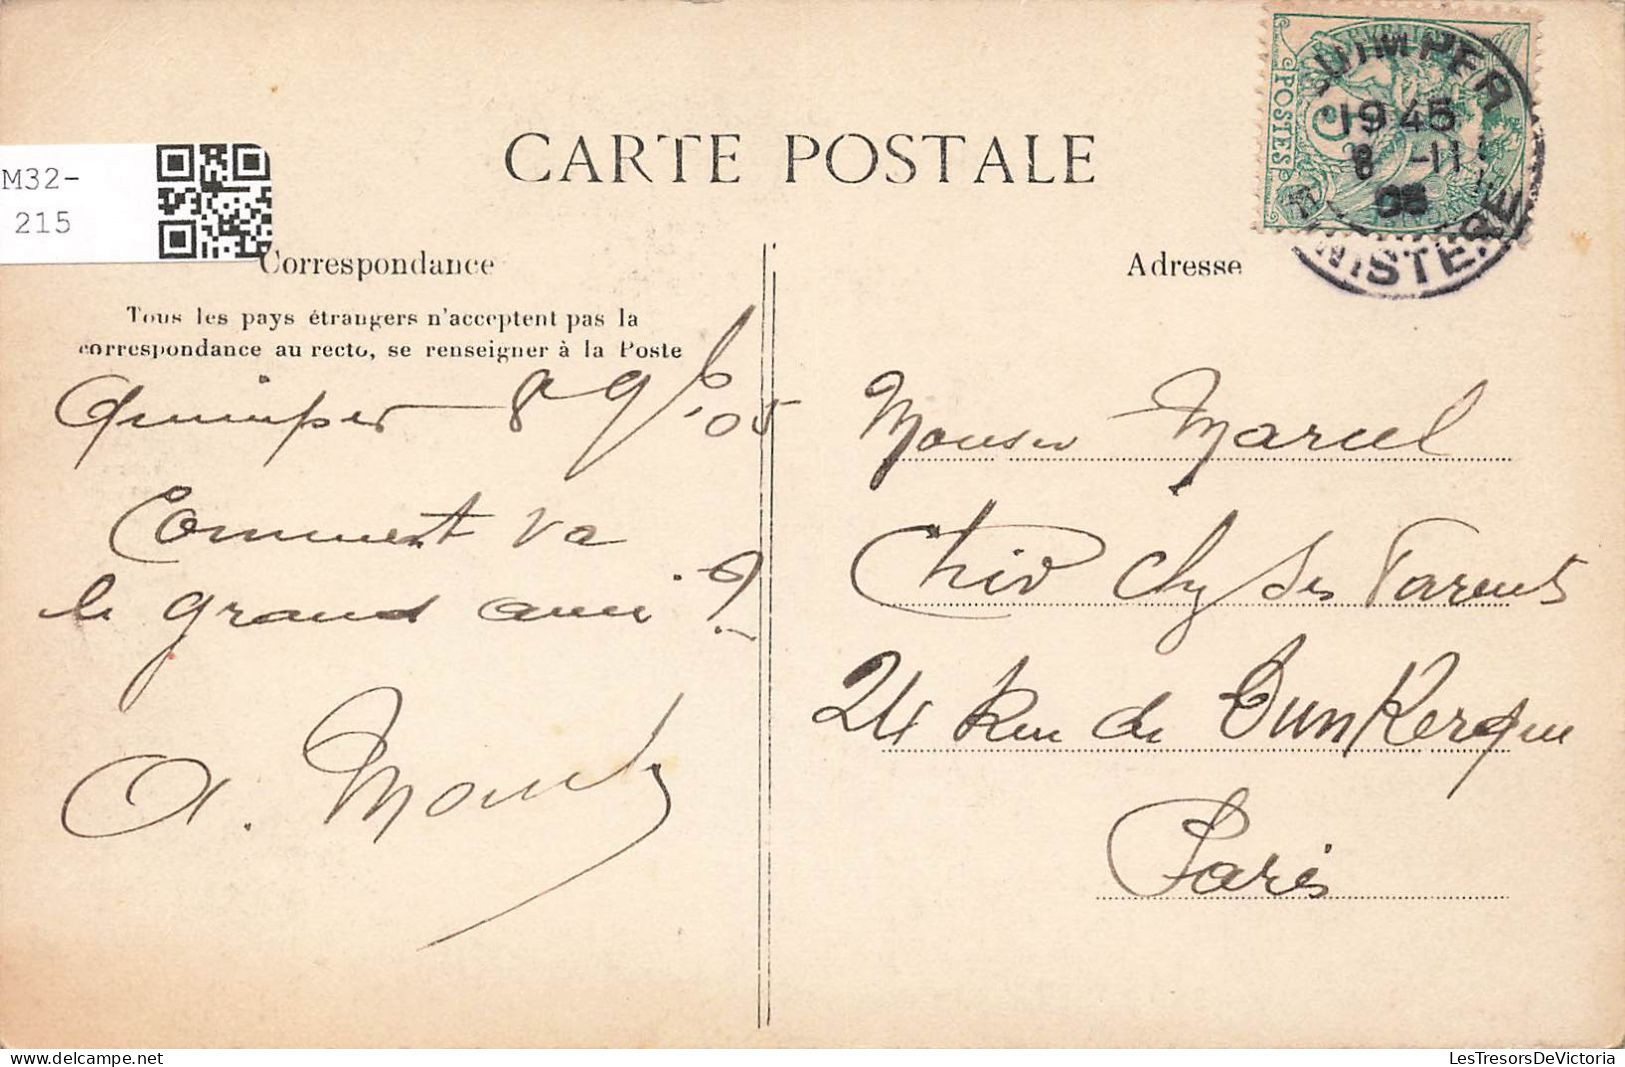 CARTE POSTALE
M32-
215
Correspondance
Adresse
Tous les pays étrangers n'acceptent pas la
correspondance au recto, se renseigner à la Poste
QUIMPER
19 45
8 -11
05
FINISTERE
POSTES
5
Quimper 8 9b 05
Comment va
le grand ami ?
A.
Monsieur Marcel
chez ses Parents
24 Rue de Dunkerque
Paris
LesTresorsDeVictoria